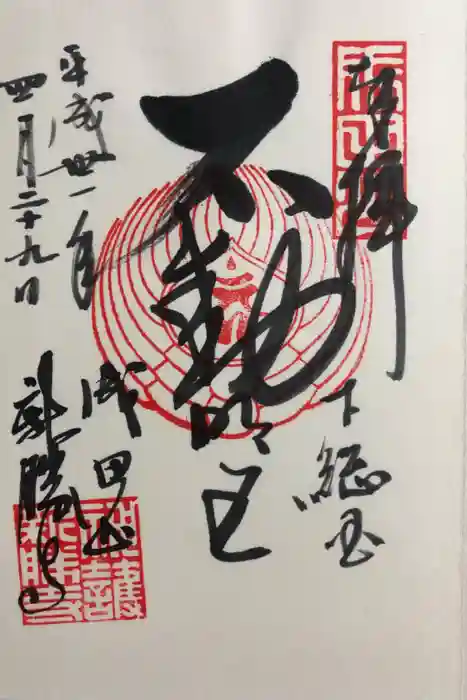 奉拝
下総国
不動明王
成田山
新勝寺
平成卅一年
四月二十九日